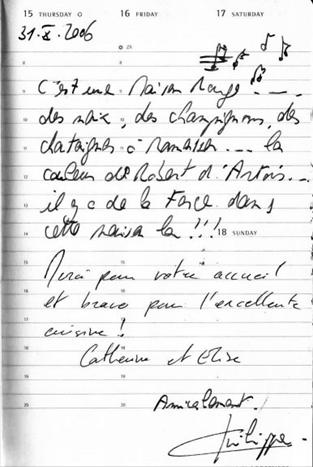 15 THURSDAY 16 FRIDAY 17 SATURDAY
31.X.2006
C'est une Maison Rouge....
des noix, des champignons, des
chataignes à ramasser.... la
couleur de Robert d'Artois...
il y a de la Force dans
cette maison là !!!
18 SUNDAY
Merci pour votre accueil
et bravo pour l'excellente
cuisine !
Catherine et Elise
Amicalement.
Philippe